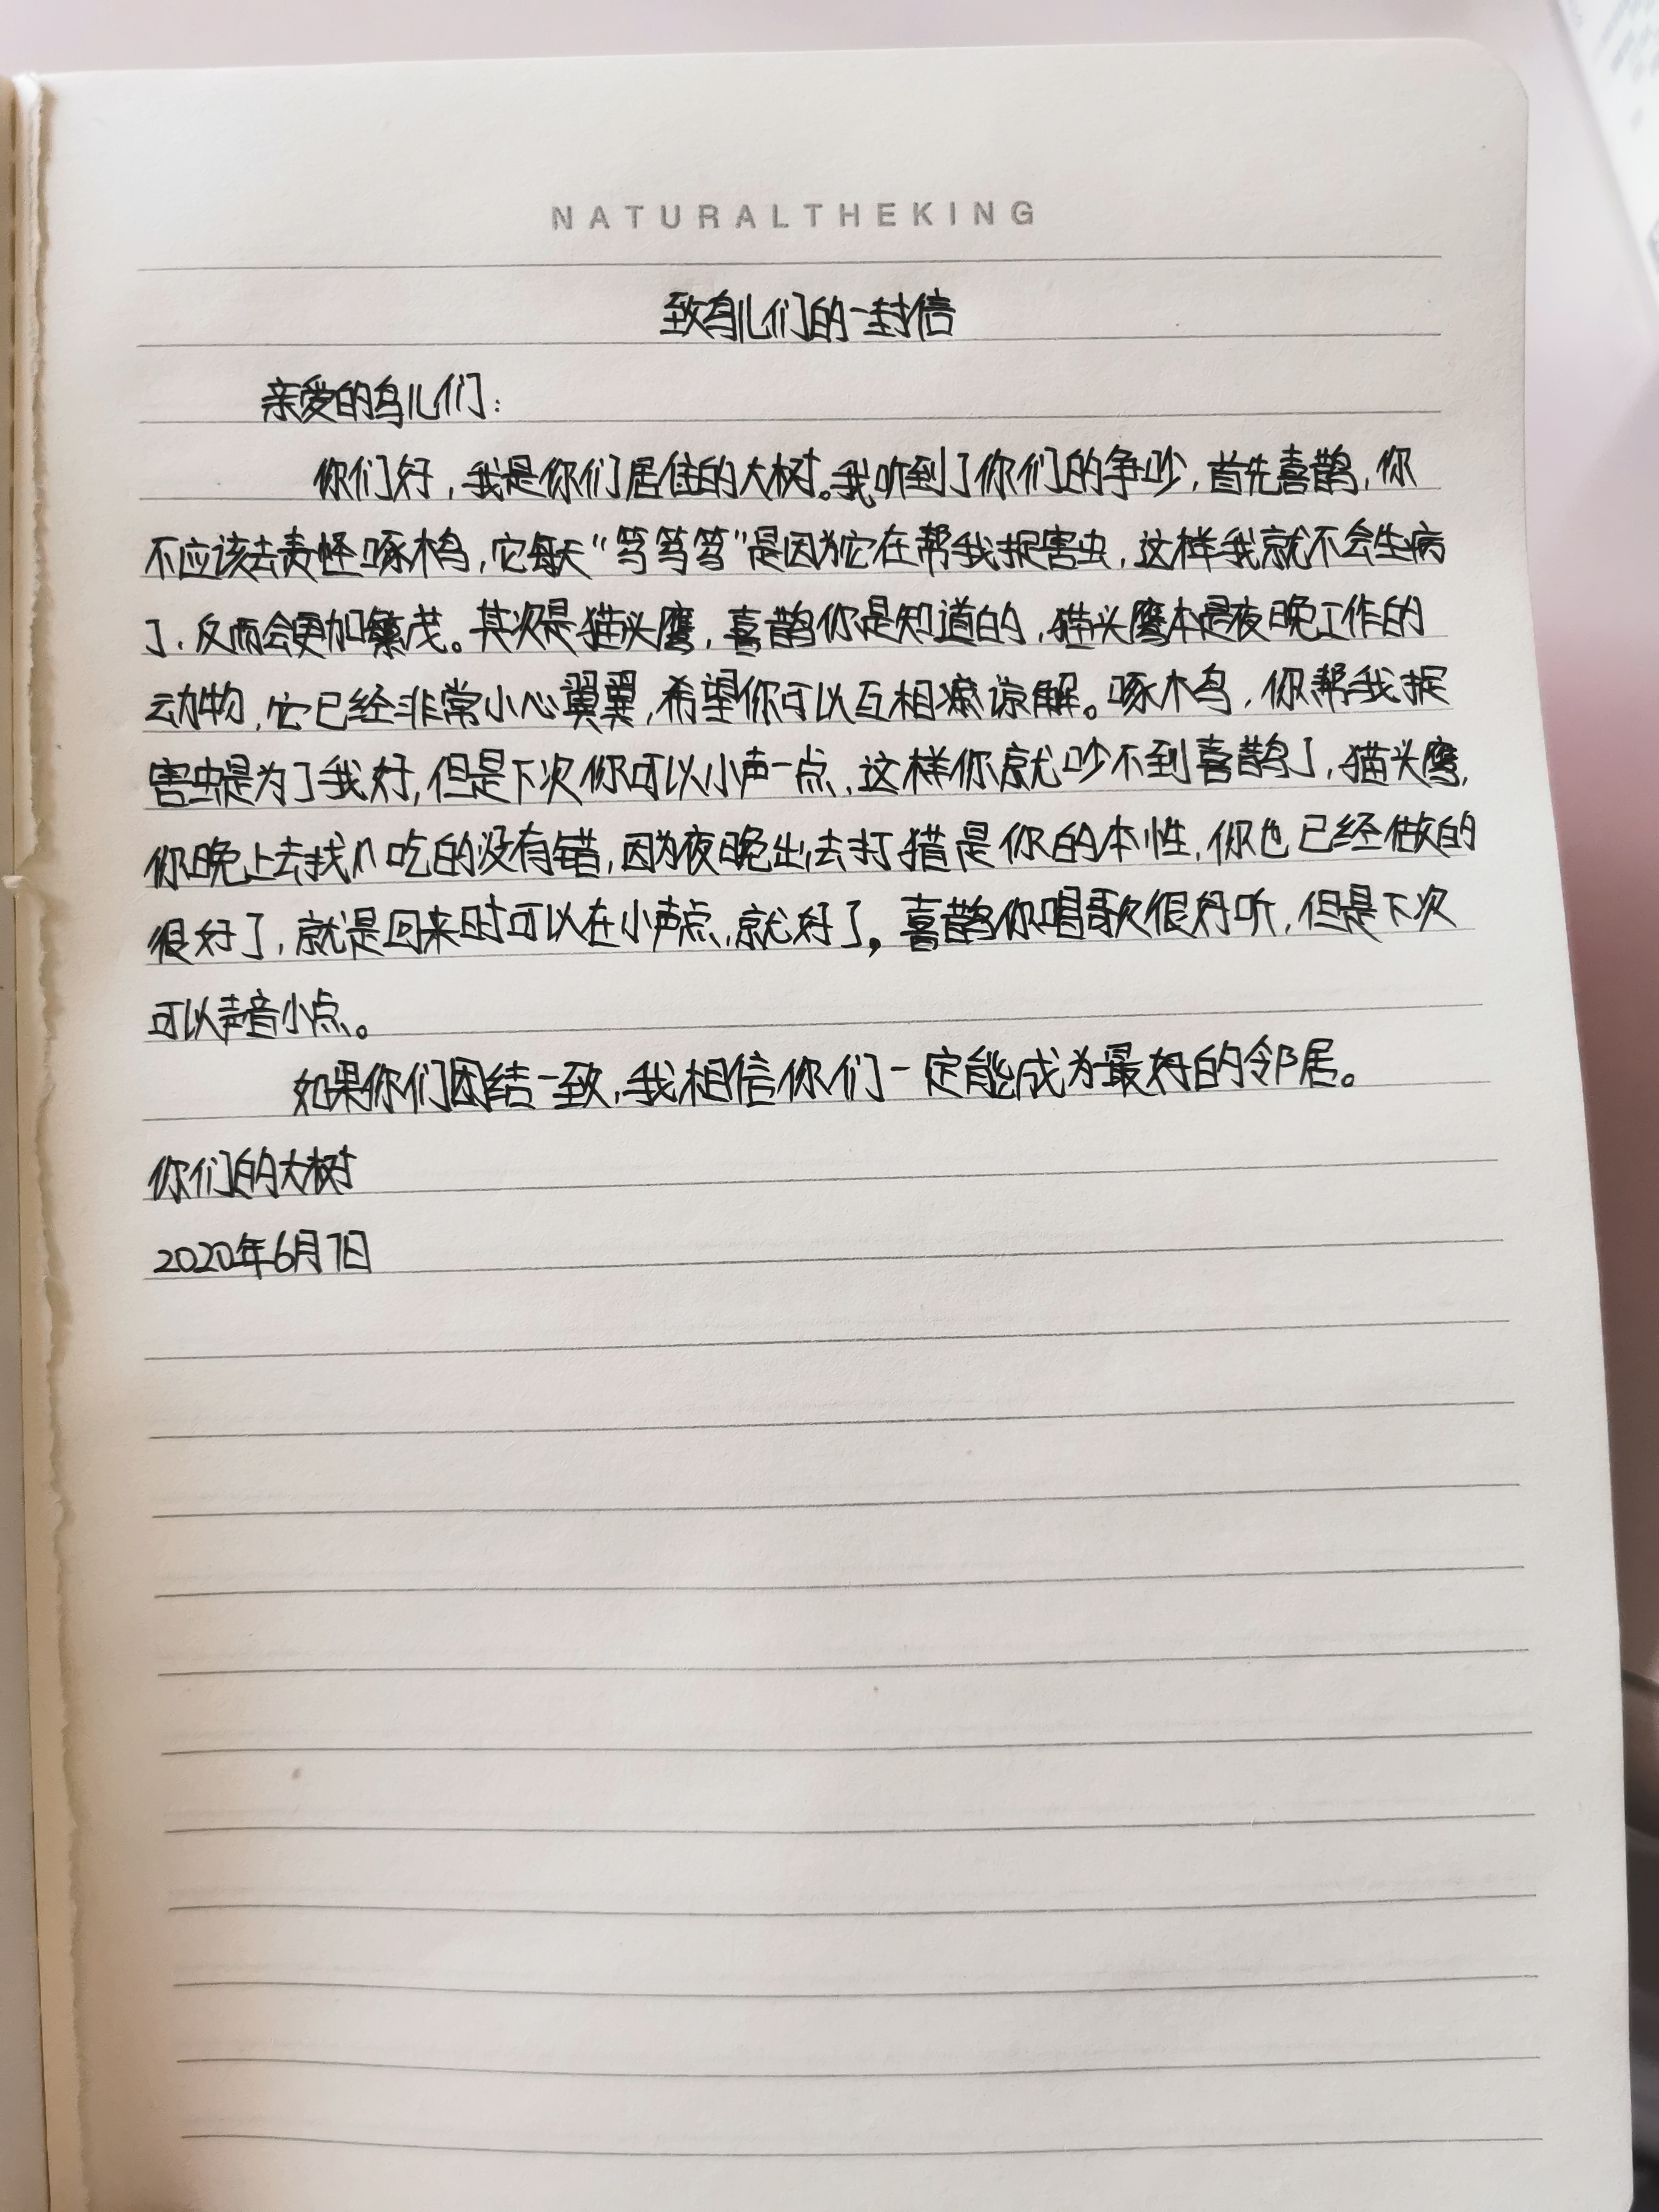 NATURALTHEKING
致鸟儿们的一封信
亲爱的鸟儿们:
你们好,我是你们居住的大树。我听到了你们的争吵,首先喜鹊,你
不应该去责怪啄木鸟,它每天“笃笃笃”是因为它在帮我捉害虫,这样我就不会生病
了,反而会更加繁茂。其次是猫头鹰,喜鹊你是知道的,猫头鹰本是夜晚工作的
动物,它已经非常小心翼翼,希望你可以互相谅解。啄木鸟,你帮我捉
害虫是为了我好,但是下次你可以小声一点,这样你就吵不到喜鹊了,猫头鹰,
你晚上去找吃的没有错,因为夜晚出去打猎是你的本性,你也已经做的
很好了,就是回来时可以在小声点,就好了,喜鹊你唱歌很好听,但是下次
可以声音小点。
如果你们团结一致,我相信你们一定能成为最好的邻居。
你们的大树
2020年6月7日